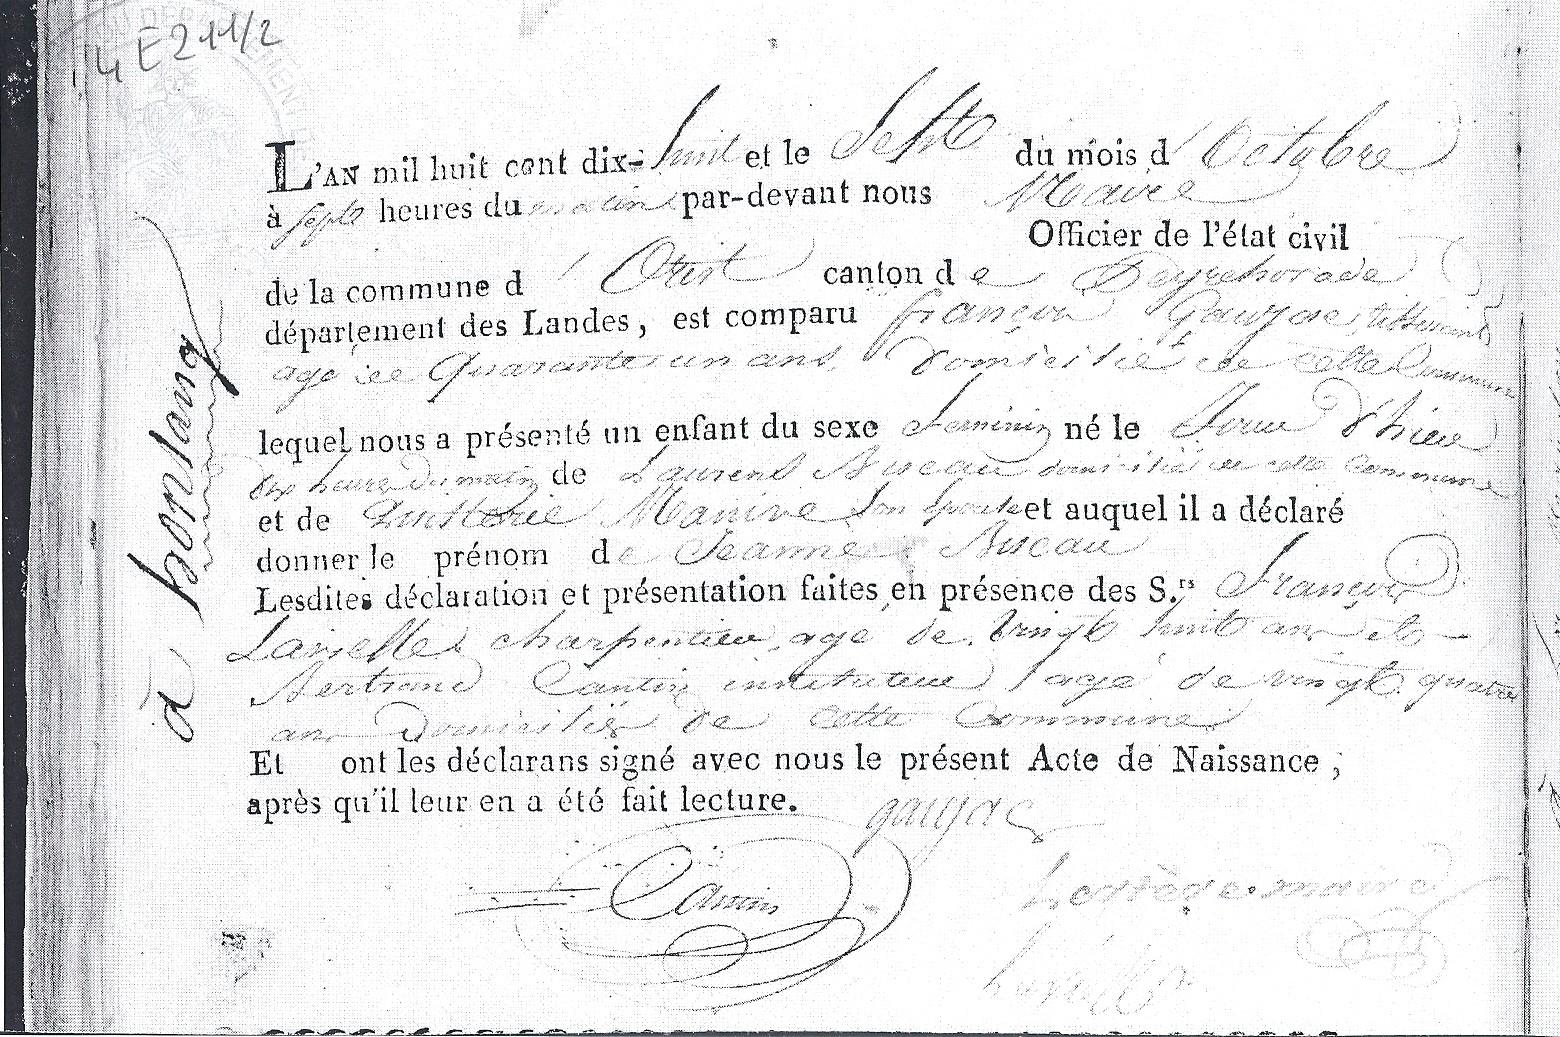 4 E 211/2
L'AN mil huit cent dix-huit et le Sept du mois d'Octobre
à sept heures du matin par-devant nous Maire
Officier de l'état civil
de la commune d'Orist canton de Peyrehorade
département des Landes, est comparu françois Gaujac, tisserand
agé de Quarante un ans, Domicilié de cette Commune
lequel nous a présenté un enfant du sexe feminin né le Jour d'hier
dix heures du matin de Laurens domicilié de cette Commune
et de Quitterie son Epouse et auquel il a déclaré
donner le prénom de Jeanne
Lesdites déclaration et présentation faites en présence des S.rs François
charpentier, agé de vingt huit ans et
Bertrand Cantin instituteur agé de vingt quatre
ans Domiciliés de cette Commune
Et ont les déclarans signé avec nous le présent Acte de Naissance,
après qu'il leur en a été fait lecture.
gaujac
Cantin
maire
a